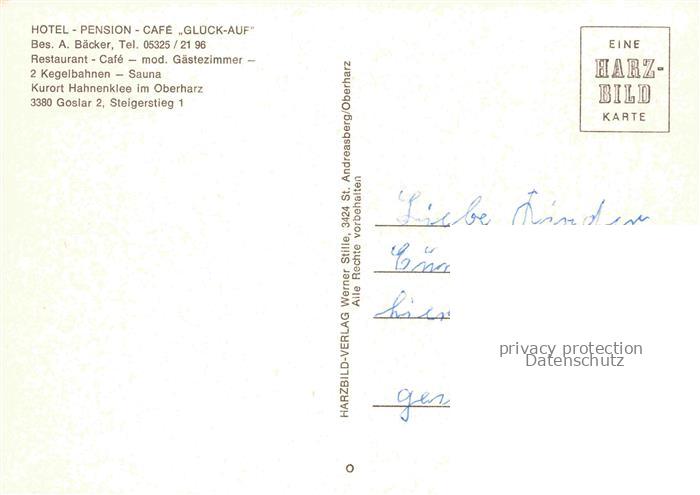 HOTEL - PENSION - CAFÉ „GLÜCK-AUF"
Bes. A. Bäcker, Tel. 05325 / 21 96
Restaurant - Café — mod. Gästezimmer —
2 Kegelbahnen — Sauna
Kurort Hahnenklee im Oberharz
3380 Goslar 2, Steigerstieg 1
HARZBILD-VERLAG Werner Stille, 3424 St. Andreasberg/Oberharz
Alle Rechte vorbehalten
EINE
HARZ-
BILD
KARTE
Liebe Kinder
hier
privacy protection
Datenschutz